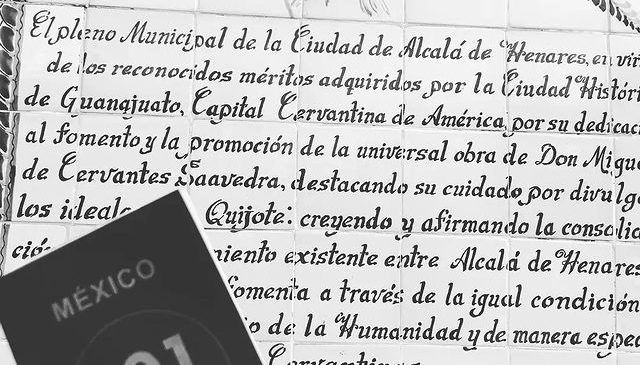 El pleno Municipal de la Ciudad de Alcalá de Henares, en vir
de los reconocidos méritos adquiridos por la Ciudad Histór
de Guanajuato, Capital Cervantina de América, por su dedicac
al fomento y la promoción de la universal obra de Don Migu
de Cervantes Saavedra, destacando su cuidado por divulg
los ideal Quijote: creyendo y afirmando la consolid
ció miento existente entre Alcalá de Henares
fomenta a través de la igual condición
o de la Humanidad y de manera espec
Cervantin
MÉXICO
91